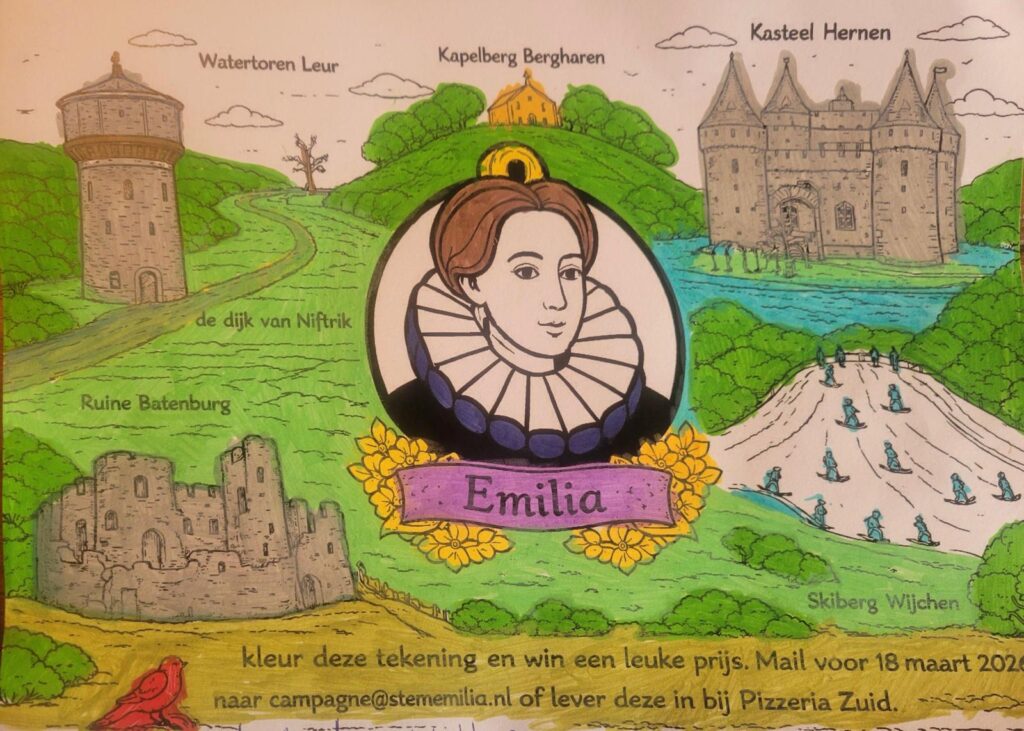 Kasteel Hernen
Kapelberg Bergharen
Watertoren Leur
de dijk van Niftrik
Ruine Batenburg
Emilia
Skiberg Wijchen
kleur deze tekening en win een leuke prijs. Mail voor 18 maart 2026
naar campagne@stememilia.nl of lever deze in bij Pizzeria Zuid.